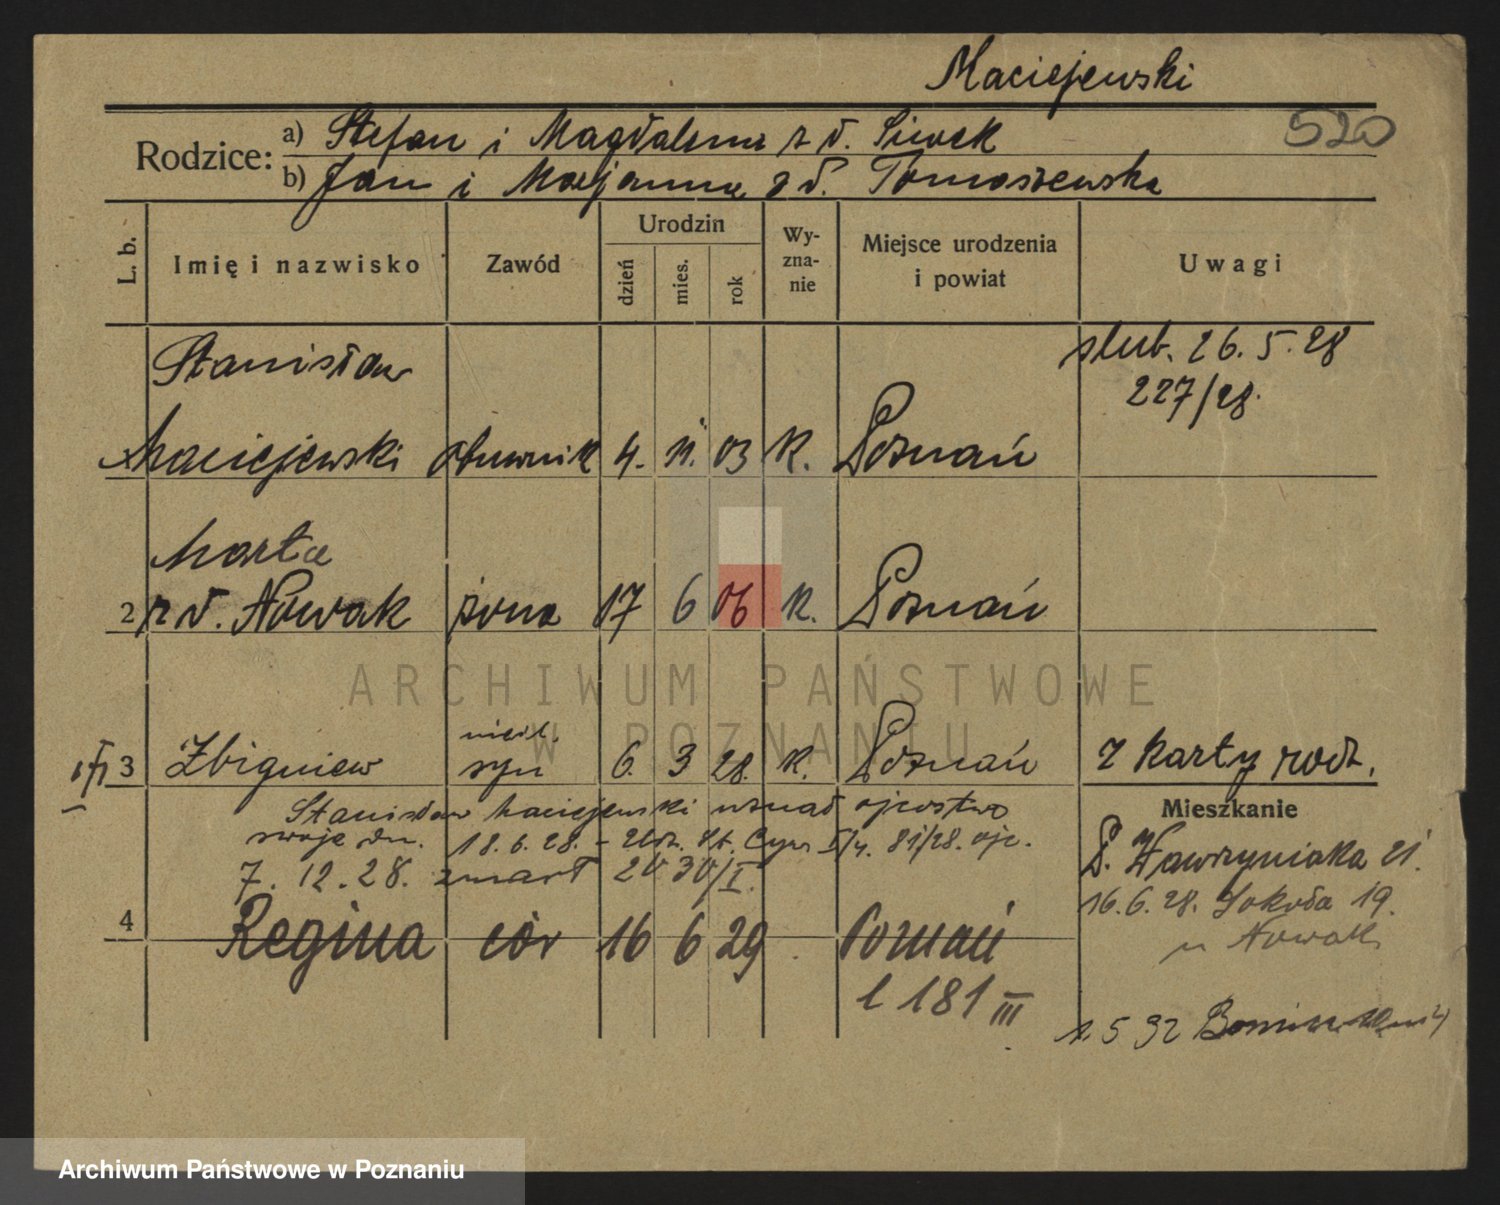 Maciejewski
520
Rodzice: a) Stefan i Magdalena z d. Siwek
b) Jan i Marjanna z d. Tomaszewska
L. b. Imię i nazwisko Zawód Urodzin dzień mies. rok Wy-zna-nie Miejsce urodzenia i powiat Uwagi
Stanisław ślub. 26. 5. 28
227/28.
Maciejewski obuwnik 4. 11. 03 k. Poznań
Marta
2 z d. Nowak żona 17 6 06 k. Poznań
ARCHIWUM PAŃSTWOWE
W POZNANIU
nieśl.
3 Zbigniew syn 6. 3 28. k. Poznań z karty rodz.
Mieszkanie
Stanisław Maciejewski uznał ojcostwo
swoje dn. 18. 6. 28. - Urz. St. Cyw. 81/28. ojc.
Wawrzyniaka 21.
7. 12. 28. zmarł 2030/I.
16. 6. 28. Sokoła 19.
u Nowak
4 Regina cór 16 6 29 Poznań
l 181 III
1 5 32
Archiwum Państwowe w Poznaniu